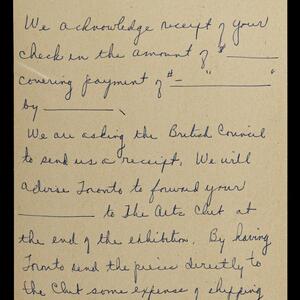 We acknowledge receipt of your
check in the amount of $ ______
covering payment of $ - " "
by ______ .
We are asking the British Council
to send us a receipt. We will
advise Toronto to forward your
______ to The Arts Club at
the end of the exhibition. By having
Toronto send the pieces directly to
the Club some expense of shipping